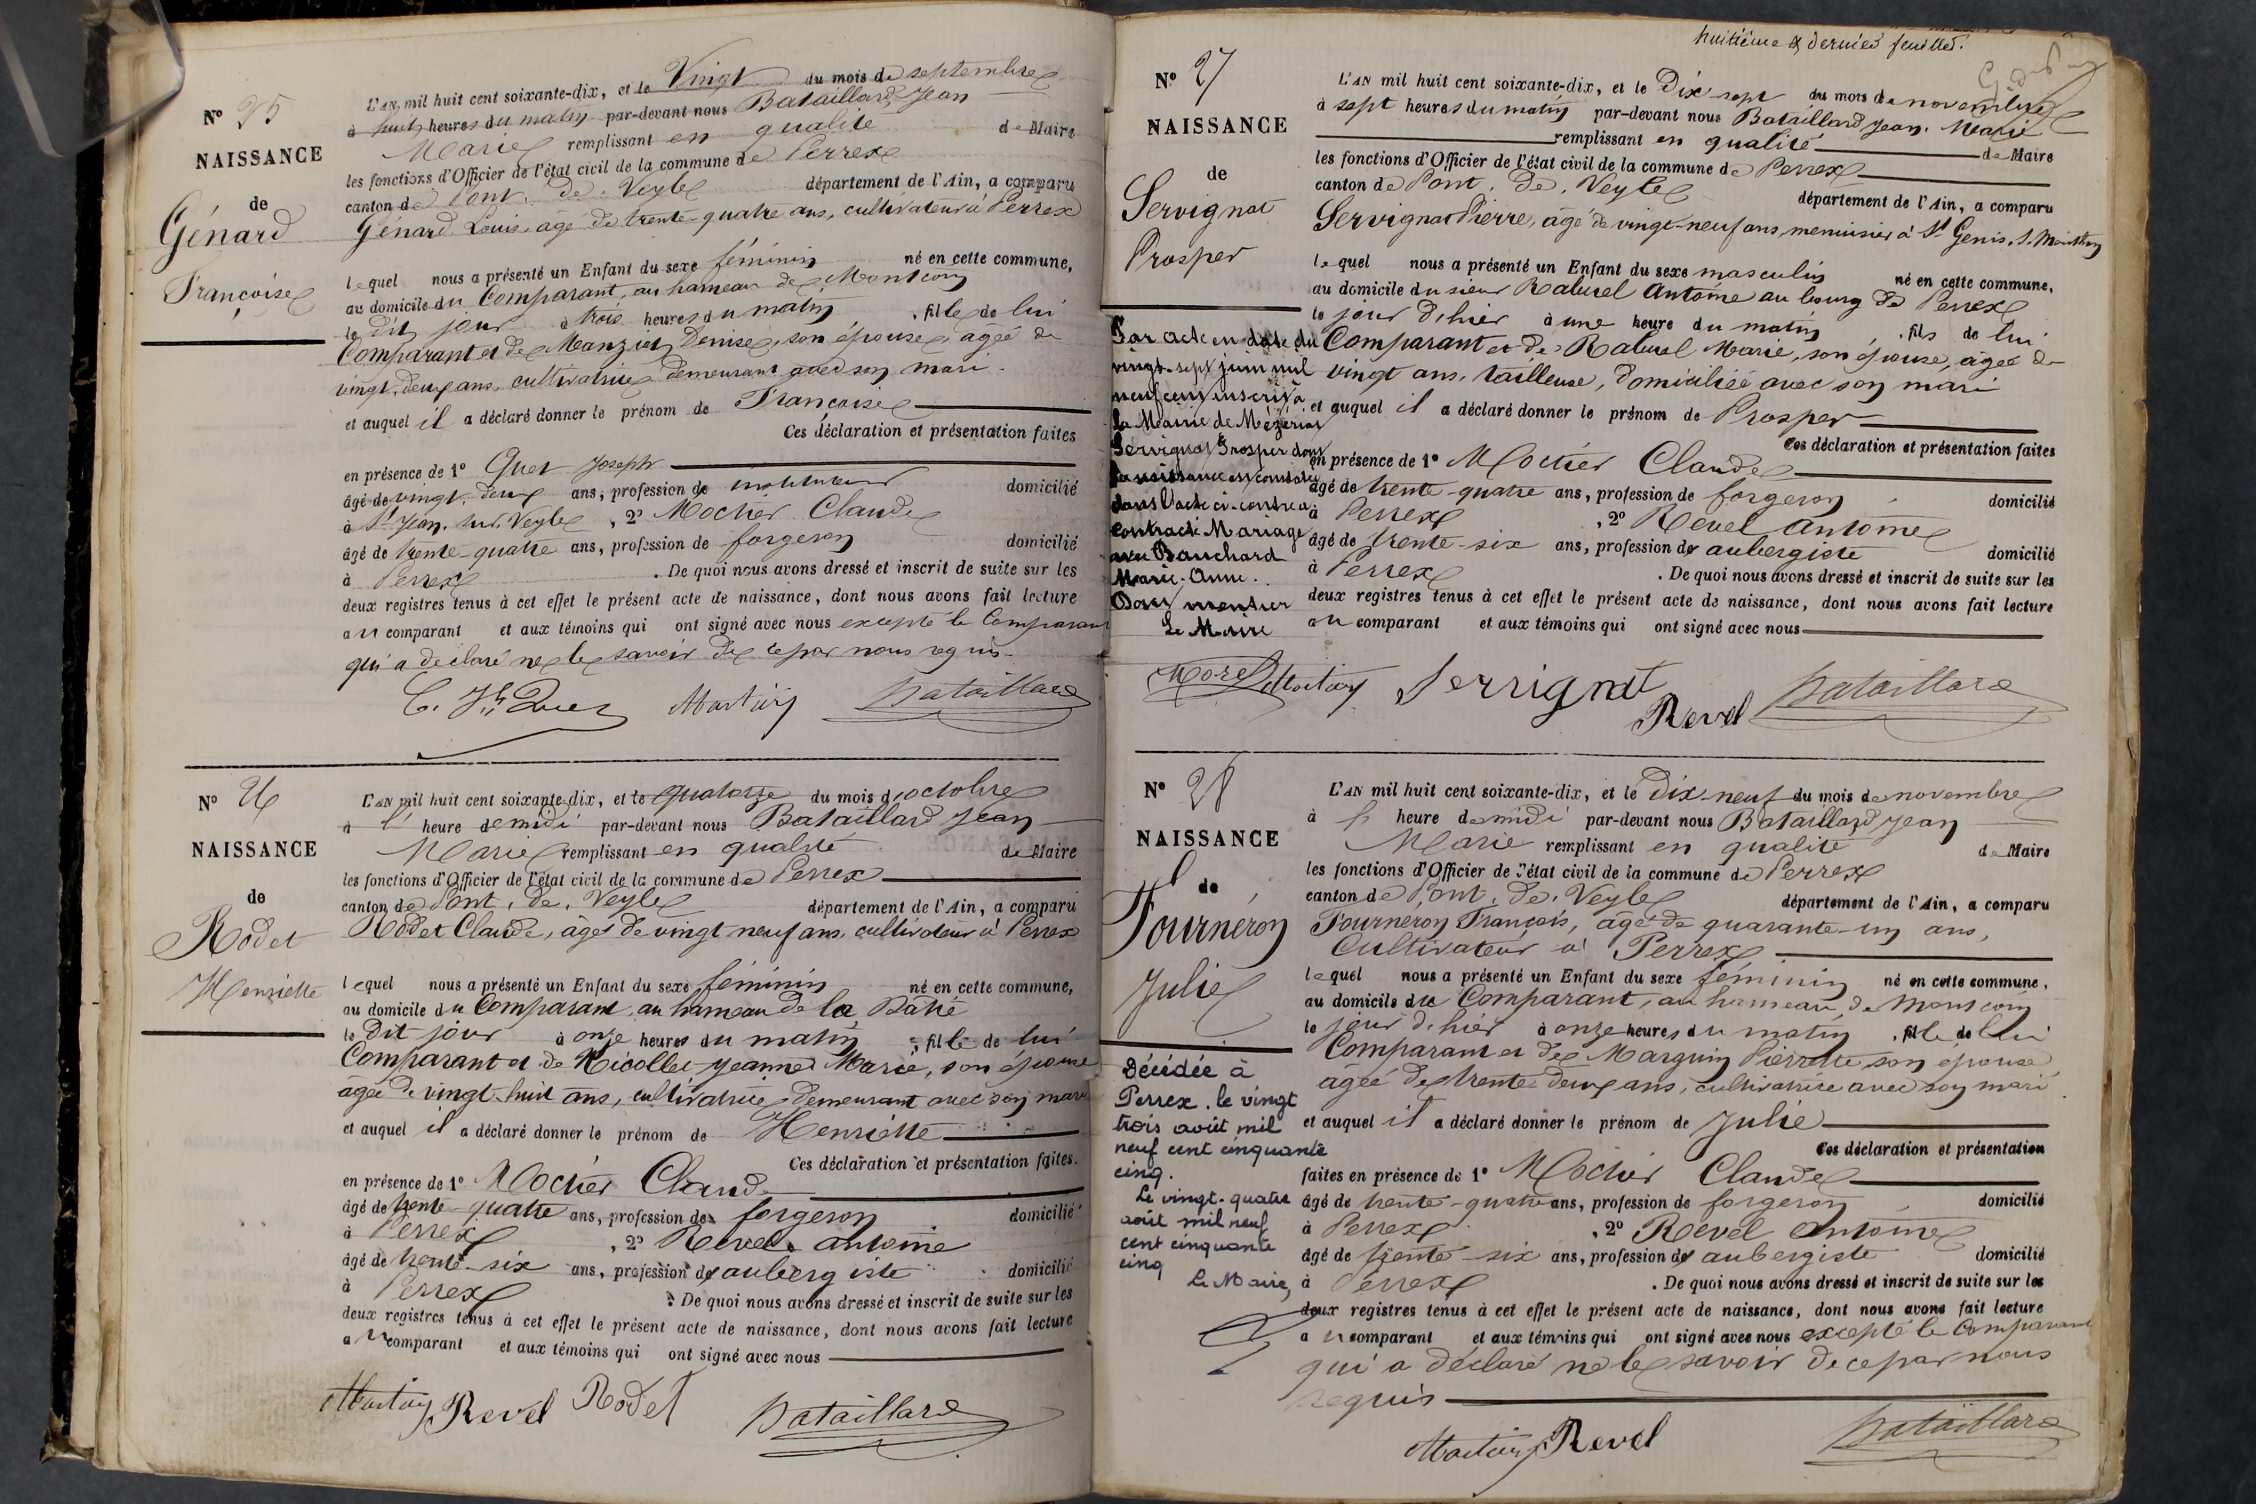 N° 25
NAISSANCE
de
Génard
Françoise
L'AN mil huit cent soixante-dix, et le Vingt du mois de septembre
à huit heures du matin par-devant nous Bataillard Jean
Marie remplissant en qualité de Maire
les fonctions d'Officier de l'état civil de la commune de Perrex
canton de Pont. de. Veyle département de l'Ain, a comparu
Génard Louis, agé de trente-quatre ans, cultivateur à Perrex
lequel nous a présenté un Enfant du sexe féminin né en cette commune,
au domicile du Comparant, au hameau de Montcoin
le dit jour à trois heures du matin, fille de lui
Comparant et de Denise, son épouse, agée de
vingt-deux ans, cultivatrice demeurant avec son mari.
et auquel il a déclaré donner le prénom de Françoise
Ces déclaration et présentation faites
en présence de 1° Quet Joseph
âgé de vingt-deux ans, profession de instituteur domicilié
à St Jean. sur. Veyle, 2° Claude
âgé de trente-quatre ans, profession de forgeron domicilié
à Perrex. De quoi nous avons dressé et inscrit de suite sur les
deux registres tenus à cet effet le présent acte de naissance, dont nous avons fait lecture
au comparant et aux témoins qui ont signé avec nous excepté le Comparant
qui a declaré ne le savoir de ce par nous requis
Bataillard
N° 26
NAISSANCE
de
Rodet
Henriette
L'AN mil huit cent soixante-dix, et le quatorze du mois d'octobre
à l' heure de midi par-devant nous Bataillard Jean
Marie remplissant en qualité de Maire
les fonctions d'Officier de l'état civil de la commune de Perrex
canton de Pont. de. Veyle département de l'Ain, a comparu
Rodet Claude, âgé de vingt neuf ans, cultivateur à Perrex
lequel nous a présenté un Enfant du sexe féminin né en cette commune,
au domicile du Comparant, au hameau de la Bâtie
le dit jour à onze heures du matin, fille de lui
Comparant et de Nicollet Jeanne Marie, son épouse
agée de vingt-huit ans, cultivatrice demeurant avec son mari
et auquel il a déclaré donner le prénom de Henriette
Ces déclaration et présentation faites.
en présence de 1° Claude
âgé de trente-quatre ans, profession de forgeron domicilié
à Perrex, 2° Revel antoine
âgé de trente-six ans, profession d'aubergiste domicilié
à Perrex. De quoi nous avons dressé et inscrit de suite sur les
deux registres tenus à cet effet le présent acte de naissance, dont nous avons fait lecture
au comparant et aux témoins qui ont signé avec nous
Revel Rodet Bataillard
huitième & dernier feuillet.
N° 27
NAISSANCE
de
Servignat
Prosper
Par acte en date du
vingt-sept juin mil
neuf cent inscrit à
la Mairie de Mézériat
Servignat Prosper dont
la naissance est constatée
dans l'acte ci-contre a
contracté Mariage
avec Banchard
Marie-Anne.
Dont mention
Le Maire
L'AN mil huit cent soixante-dix, et le Dix-sept du mois de novembre
à sept heures du matin par-devant nous Bataillard Jean. Marie
remplissant en qualité de Maire
les fonctions d'Officier de l'état civil de la commune de Perrex
canton de Pont. de. Veyle département de l'Ain, a comparu
Servignat Pierre, âgé de vingt-neuf ans, menuisier à St Genis.
lequel nous a présenté un Enfant du sexe masculin né en cette commune,
au domicile du sieur antoine au bourg de Perrex
le jour d'hier à une heure du matin, fils de lui
Comparant et de Marie, son épouse, âgée de
vingt ans, tailleuse, domiciliée avec son mari
et auquel il a déclaré donner le prénom de Prosper
Ces déclaration et présentation faites
en présence de 1° Claude
âgé de trente-quatre ans, profession de forgeron domicilié
à Perrex, 2° Revel antoine
âgé de trente-six ans, profession d'aubergiste domicilié
à Perrex. De quoi nous avons dressé et inscrit de suite sur les
deux registres tenus à cet effet le présent acte de naissance, dont nous avons fait lecture
au comparant et aux témoins qui ont signé avec nous
Morel Servignat
Revel Bataillard
N° 28
NAISSANCE
de
Fournéron
Julie
Décédée à
Perrex. le vingt
trois août mil
neuf cent cinquante
cinq.
Le vingt-quatre
août mil neuf
cent cinquante
cinq
Le Maire,
L'AN mil huit cent soixante-dix, et le Dix-neuf du mois de novembre
à l' heure de midi par-devant nous Bataillard Jean
Marie remplissant en qualité de Maire
les fonctions d'Officier de l'état civil de la commune de Perrex
canton de Pont. de. Veyle département de l'Ain, a comparu
Fourneron François, âgé de quarante-un ans,
Cultivateur à Perrex
lequel nous a présenté un Enfant du sexe féminin né en cette commune,
au domicile du Comparant, au hameau de Montcoin
le jour d'hier à onze heures du matin, fille de lui
Comparant et de Marguin Pierrette son épouse
âgée de trente-deux ans, cultivatrice avec son mari
et auquel il a déclaré donner le prénom de Julie
Ces déclaration et présentation
faites en présence de 1° Claude
âgé de trente-quatre ans, profession de forgeron domicilié
à Perrex, 2° Revel antoine
âgé de trente-six ans, profession d'aubergiste domicilié
à Perrex. De quoi nous avons dressé et inscrit de suite sur les
deux registres tenus à cet effet le présent acte de naissance, dont nous avons fait lecture
au comparant et aux témoins qui ont signé avec nous excepté le Comparant
qui a déclaré ne le savoir de ce par nous
requis
Revel Bataillard